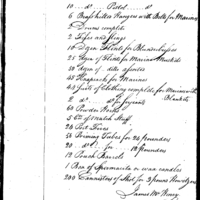 10 do. Pistol do.
6 Brass hilted Hangers with Belts for Marines
2 Drums complete
2 Fifes and slings
10 Dozn Flints for Blunderbusses
25 dozn of Flints for Marine Muskets
50 dozn of ditto
45 Knapsacks for Marines
43 Suits of Clothing complete for Marines with Blankets
2 do. do. for Serjeants
60 Powder Horns
5 Ct of Match Stuff
20 Port Fires
25 Priming Tubes for 24 Pounders
20 do. for 18 Pounders
12 Pouch Barrels
1 Box of Spermaceti or wax candles
200 Cannisters of Shot for 3 pound Howitzers
James McHenry